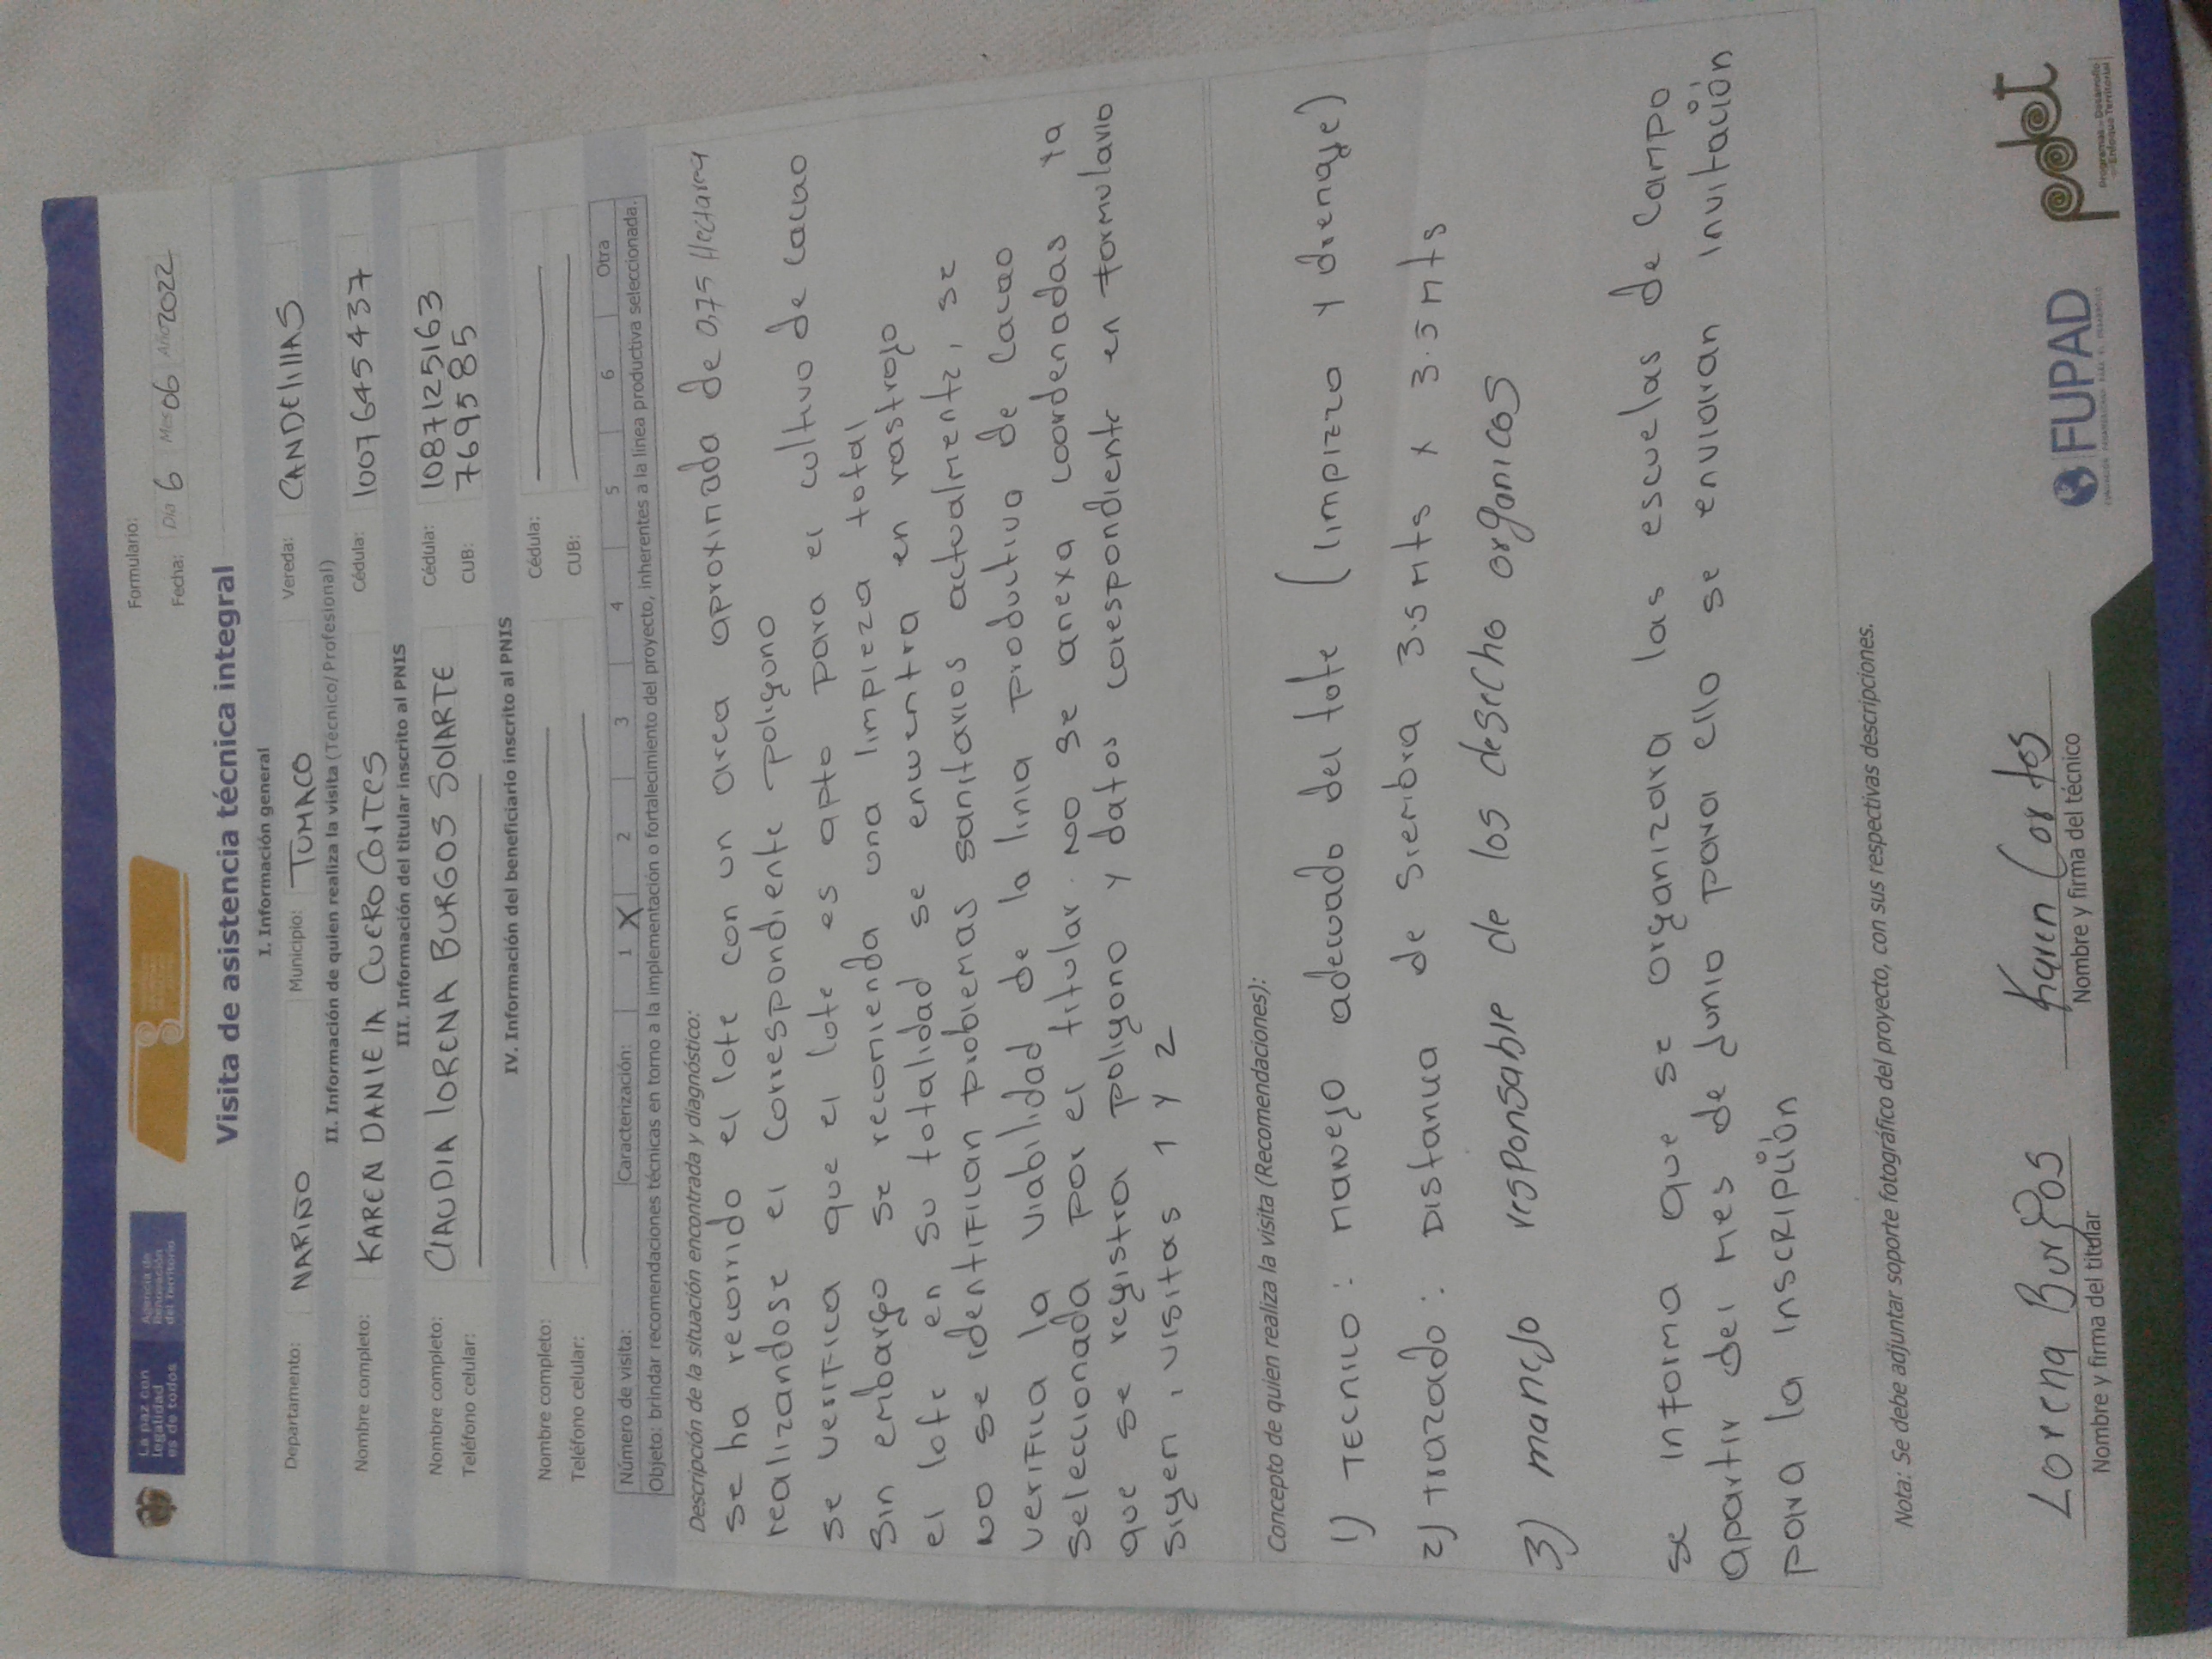 La paz con
legalidad
es de todos
Agencia de
Renovación
del Territorio
Formulario:
Fecha: Día 6 Mes 06 Año 2022
Visita de asistencia técnica integral
I. Información general
Departamento: NARIÑO Municipio: TUMACO Vereda: CANDElIllAS
II. Información de quien realiza la visita (Técnico/ Profesional)
Nombre completo: KAREN DANIElA CUERO CORTES Cédula: 1007645437
III. Información del titular inscrito al PNIS
Nombre completo: ClAUDIA lORENA BURGOS SOlARTE Cédula: 1087125163
Teléfono celular: CUB: 769585
IV. Información del beneficiario inscrito al PNIS
Nombre completo: Cédula:
Teléfono celular: CUB:
Número de visita: Caracterización: 1 X 2 3 4 5 6 Otra
Objeto: brindar recomendaciones técnicas en torno a la implementación o fortalecimiento del proyecto, inherentes a la línea productiva seleccionada.
Descripción de la situación encontrada y diagnóstico:
se ha recorrido el lote con un area aproximada de 0,75 Hectarea
realizandose el correspondiente poligono
se verifica que el lote es apto para el cultivo de cacao
sin embargo se recomienda una limpieza total
el lote en su totalidad se encuentra en rastrojo
No se identifican problemas sanitarios actualmente, se
verifica la viabilidad de la linia productiva de cacao
seleccionada por el titular. No se anexa coordenadas ya
que se registra poligono y datos corespondiente en formulario
sigen, visitas 1 y 2
Concepto de quien realiza la visita (Recomendaciones):
1) TECNICO: manejo adecuado del lote (limpizza y drenaje)
2) trazado: Distancia de siembra 3.5 mts x 3.5 mts
3) manejo responsable de los desecho organicos
se informa que se organizara las escuelas de campo
apartir del mes de junio para ello se enviaran invitación
para la inscripción
Nota: Se debe adjuntar soporte fotográfico del proyecto, con sus respectivas descripciones.
Lorena Burgos Karen Cortes
Nombre y firma del titular Nombre y firma del técnico
FUPAD
pdet
Programas de Desarrollo
con Enfoque Territorial